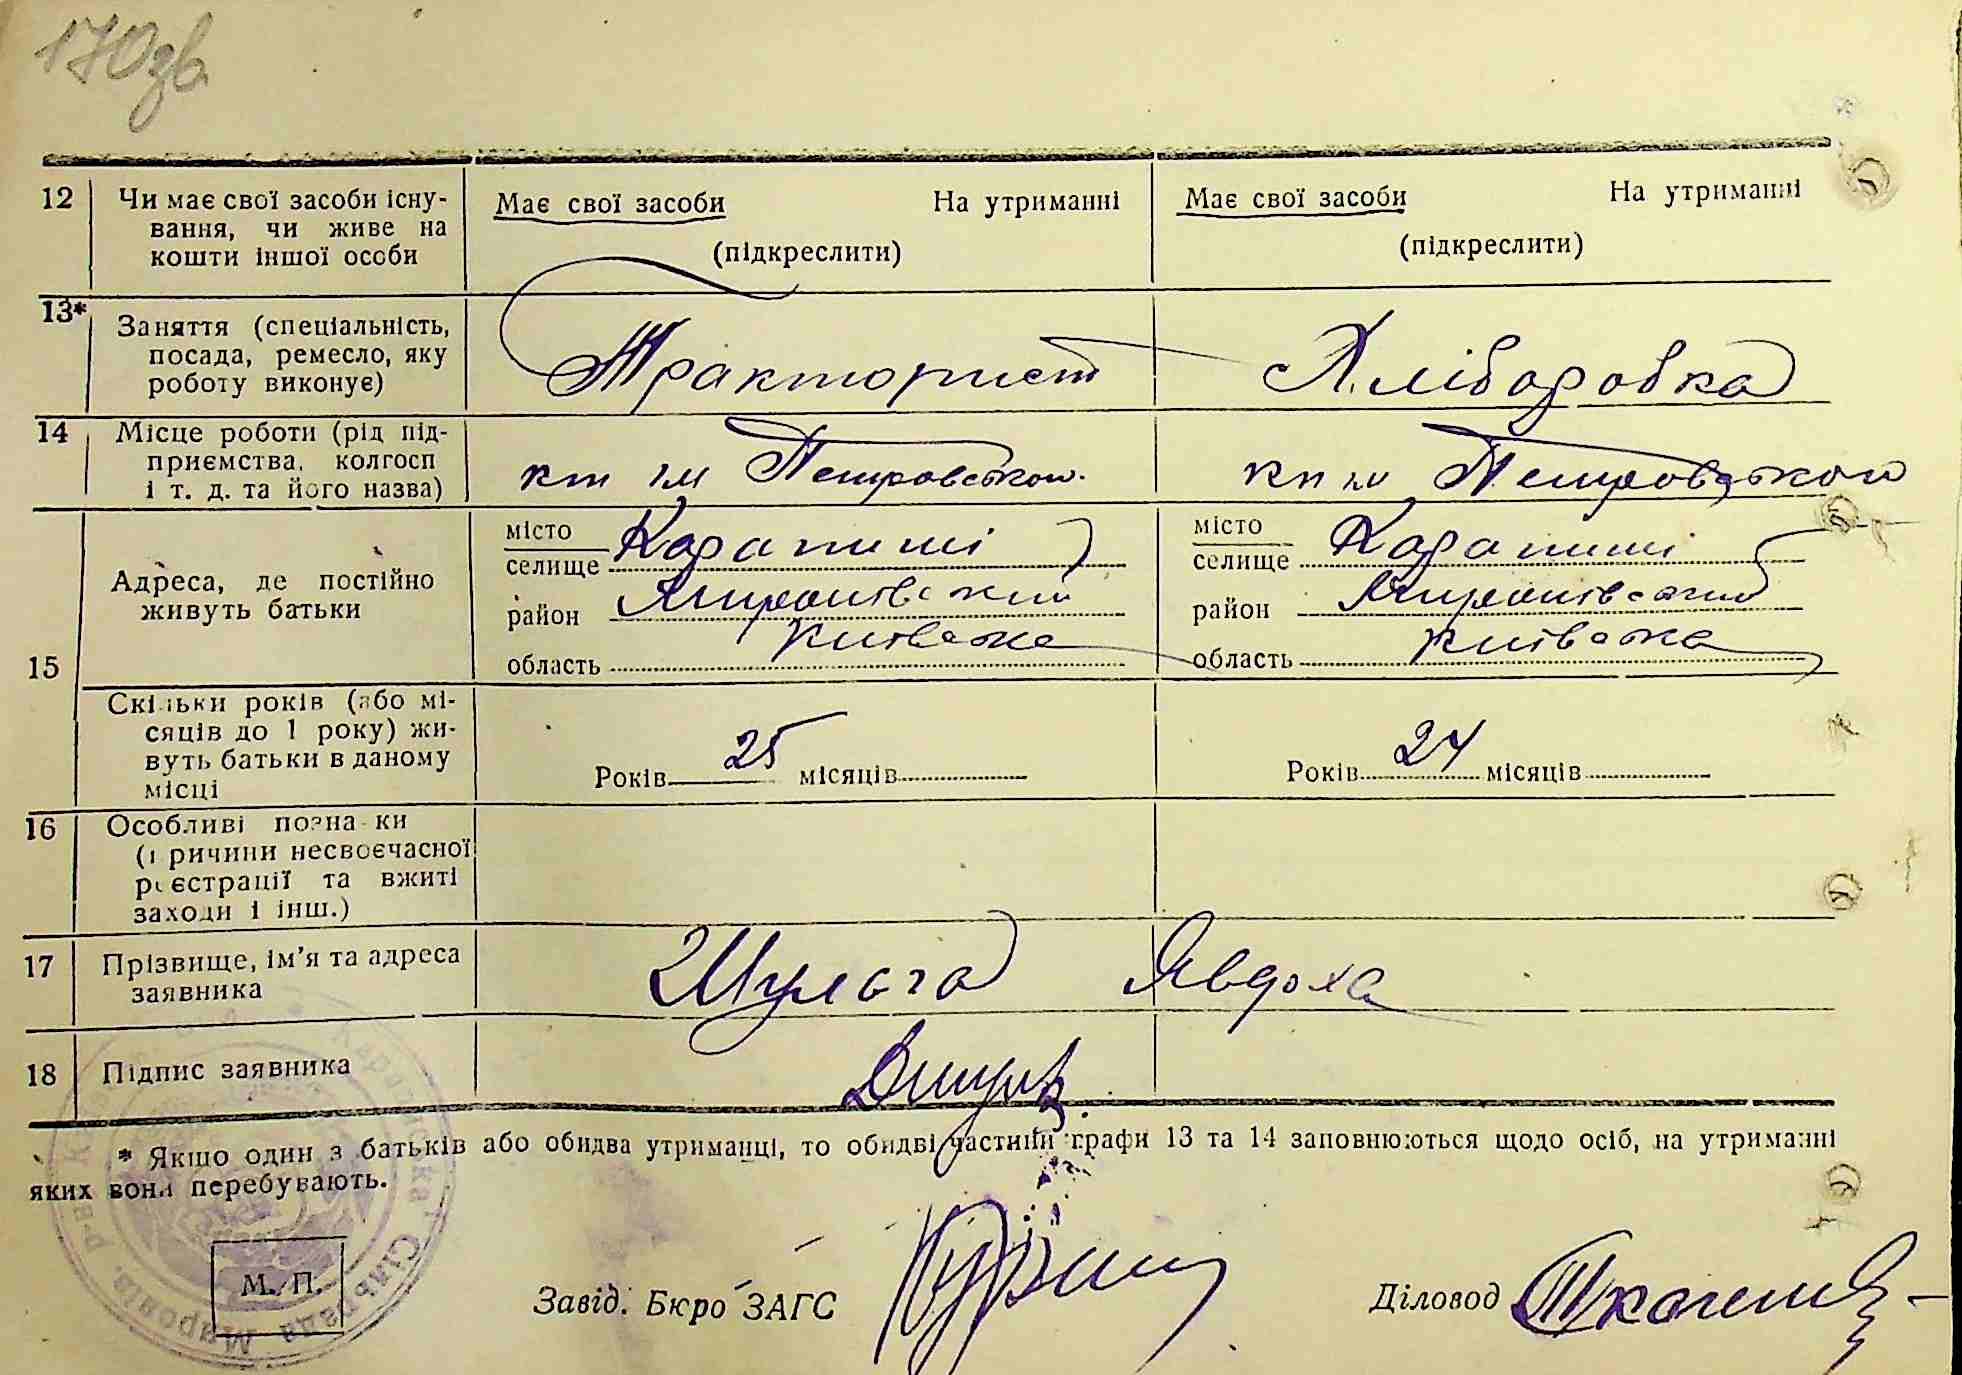 170зв
12 Чи має свої засоби існу-
вання, чи живе на
кошти іншої особи
Має свої засоби На утриманні
(підкреслити)
Має свої засоби На утриманні
(підкреслити)
13* Заняття (спеціальність,
посада, ремесло, яку
роботу виконує)
Тракторист
Хліборобка
14 Місце роботи (рід під-
приємства, колгосп
і т. д. та його назва)
кт ім Петровського
кт ім Петровського
15 Адреса, де постійно
живуть батьки
місто
селище Карапиші
район Миронівський
область Київська
місто
селище Карапиші
район Миронівський
область Київська
Скільки років (або мі-
сяців до 1 року) жи-
вуть батьки в даному
місці
Років 25 місяців
Років 24 місяців
16 Особливі познаки
(причини несвоєчасної
реєстрації та вжиті
заходи і інш.)
17 Прізвище, ім'я та адреса
заявника
Шульга Явдоха
18 Підпис заявника
* Якщо один з батьків або обидва утриманці, то обидві частини графи 13 та 14 заповнюються щодо осіб, на утриманні
яких вони перебувають.
М. П.
Завід. Бюро ЗАГС
Діловод